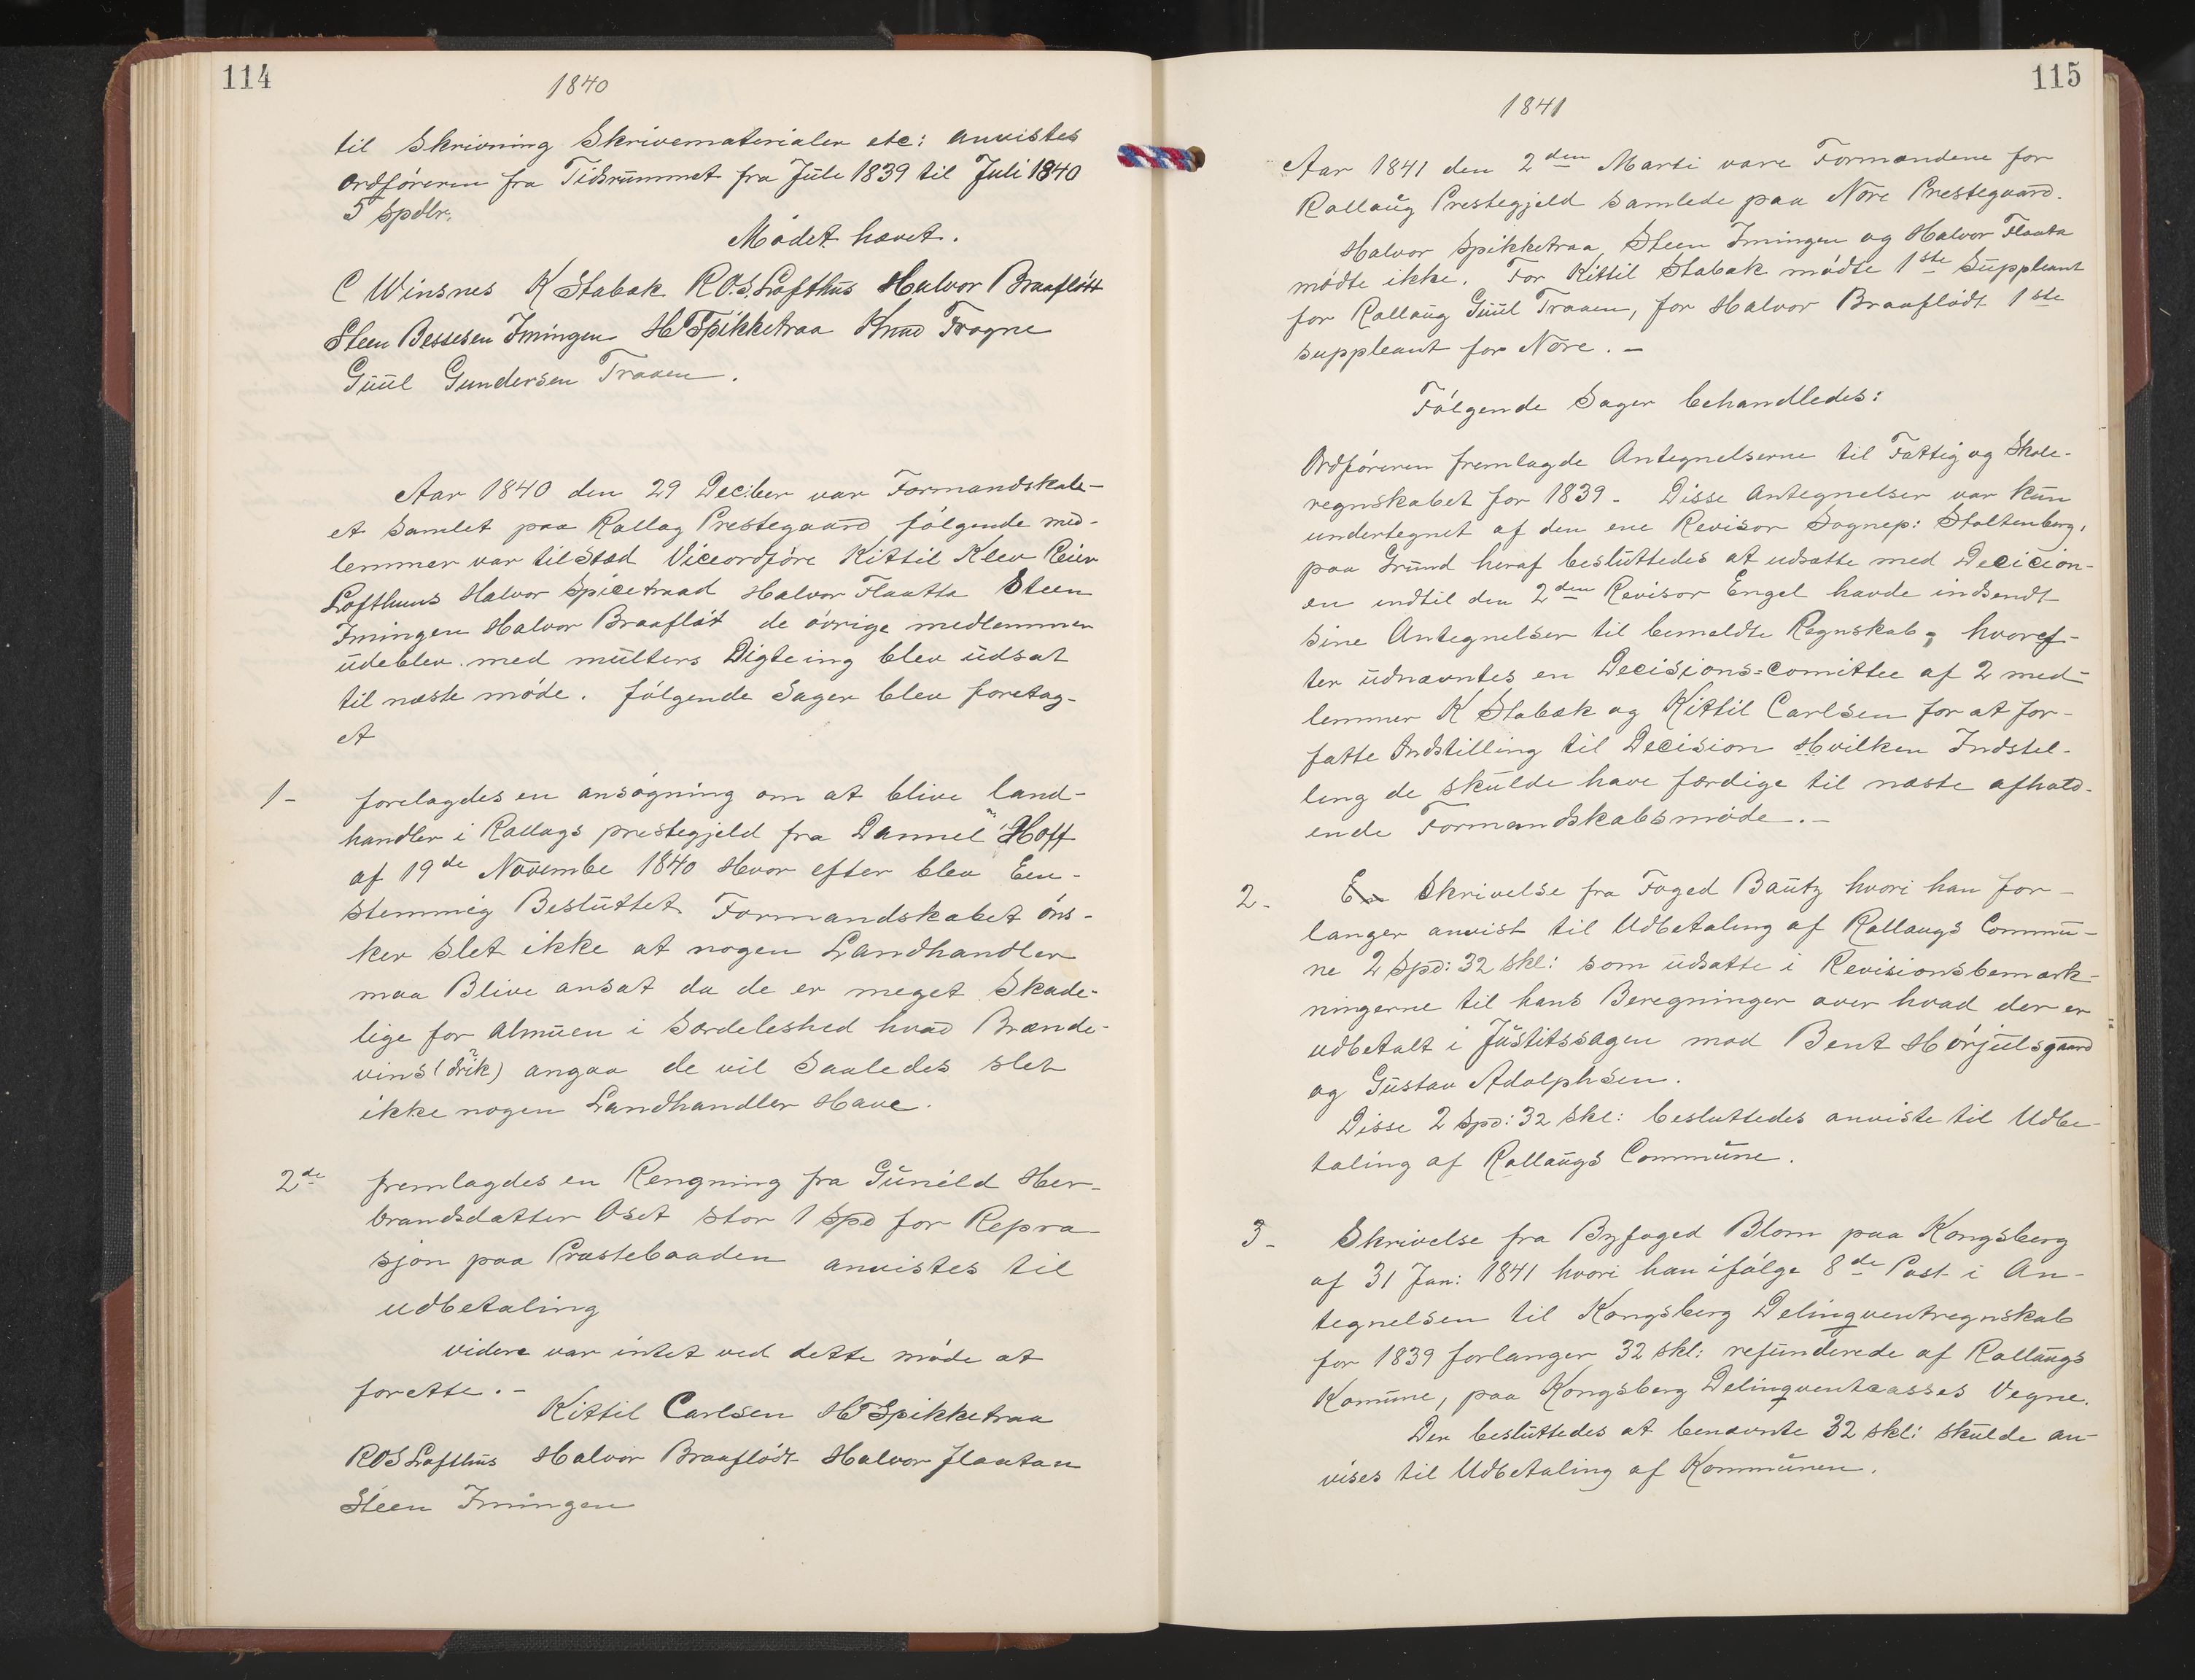 114
1840
til Skrivning Skrivematerialer etc: anvistes
Ordføreren fra Tidsrummet fra Juli 1839 til Juli 1840
5 Spdlr.
Mødet hævet.
C Winsnes K Stabæk R.O.S. Lofthus Halvor Braaflødt
Steen Bessesen Imingen H T Spikketraa Knud Frogne
Guul Gundersen Traaen.
Aar 1840 den 29 Decber var Formandskab-
et samlet paa Rollag Prestegaard følgende med-
lemmer var tilsted Viceordføre Kittil Klev Reier
Lofthuus Halvor Spicetraad Halvor Flaatta Steen
Imingen Halvor Braafløt de øvrige medlemmer
udeblev. med multers Digteing blev udsat
til næste møde. følgende Sager blev foretag-
et
1- forelagdes en ansøgning om at blive land-
handler i Rollags prestegjeld fra Dannel Hoff
af 19de Novembe 1840 Hvor efter blev Een-
stemmig Besluttet Formandskabet øns-
ker slet ikke at nogen Landhandler
maa Blive ansat da de er meget Skade-
lige for Almuen i Særdeleshed hvad Brænde-
vins (drik?) angaa de vil Saaledes slet
ikke nogen Landhandler Have.
2de fremlagdes en Rengning fra Gunild Her-
brandsdatter Oset stor 1 Spd for Repra-
sjon paa Præstebaaden anvistes til
udbetaling
videre var intet ved dette møde at
forette.-
Kittil Carlsen H T Spikketraa
R O S Lofthus Halvor Braaflødt Halvor Flaatan
Steen Imingen
115
1841
Aar 1841 den 2den Marti vare Formændene for
Rollaug Prestegjeld samlede paa Nore Prestegaard.
Halvor Spikketraa, Steen Imingen og Halvor Flaata
mødte ikke. For Kittil Stabæk mødte 1ste Suppleant
for Rollaug Guul Traaen, for Halvor Braaflødt 1ste
suppleant for Nore. -
Følgende Sager behandledes:
Ordføreren fremlagde Antegnelserne til Fattig og Skole-
regnskabet for 1839 - Disse Antegnelser var kun
undertegnet af den ene Revisor Sognep: Stoltenberg,
paa Grund heraf besluttedes at udsætte med Decicion-
en indtil den 2den Revisor Engel havde indsendt
sine Antegnelser til bemeldte Regnskab, hvoref-
ter udnævntes en Decisions=comittee af 2 med-
lemmer K Stabæk og Kittil Carlsen for at for-
fatte Indstilling til Decision Hvilken Indstil-
ling de skulde have færdige til næste afhold-
ende Formandskabsmøde.-
2- En Skrivelse fra Foged Bautz hvori han for-
langer anvist til Udbetaling af Rollaugs Commu-
ne 2 Spd: 32 skl: som udsatte i Revisionsbemærk-
ningerne til hans Beregninger over hvad der er
udbetalt i Justitssagen mod Bent Hørjulsgaard
og Gustav Adolphsen.
Disse 2 Spd: 32 skl: besluttedes anviste til Udbe-
taling af Rollaugs Commune.
3- Skrivelse fra Byfoged Blom paa Kongsberg
af 31 Jan: 1841 hvori han ifølge 8de Post i An-
tegnelsen til Kongsberg Delinqventregnskab
for 1839 forlanger 32 skl: refunderede af Rollaugs
Komune, paa Kongsberg Delinqventcasses Vegne.
Der besluttedes at benævnte 32 skl: skulde an-
vises til Udbetaling af Kommunen.